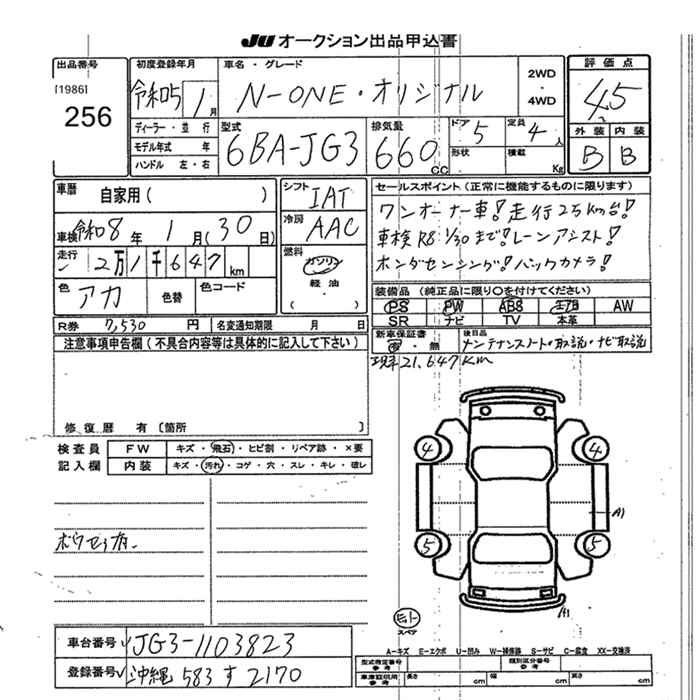 JU オークション出品申込書
出品番号
[1986]
256
初度登録年月
令和5 1月
車名・グレード
N-ONE・オリジナル
2WD
・
4WD
評価点
4.5
外装 内装
B B
ディーラー・並行
モデル年式 年
ハンドル 左・右
型式
6BA-JG3
排気量
660 CC
ドア 5
形状
定員 4人
積載 Kg
車歴
自家用( )
車検 令和8年 1月(30日)
走行 2万1千647km
色 アカ
色替
色コード
シフト IAT
冷房 AAC
燃料
ガソリン
軽油
( )
セールスポイント(正常に機能するものに限ります)
ワンオーナー車!走行25km台!
車検R8 1/30まで!レーンアシスト!
ホンダセンシング!バックカメラ!
装備品(純正品に限り○を付けてください)
PS PW ABS エアB AW
SR ナビ TV 本革
R券 7,530円 名変通知期限 月 日
新車保証書
有・無
後日品
メンテナンスノート・取説・ナビ取説
注意事項申告欄(不具合内容等は具体的に記入して下さい)
現車21,647km
修復歴 有〔箇所 〕
検査員
記入欄
FW キズ・飛石・ヒビ割・リペア跡・×要
内装 キズ・汚れ・コゲ・穴・スレ・キレ・破レ
4 4
A1
5 5
A1
スペア
A−キズ E−エクボ U−凹み W−補修跡 S−サビ C−腐食 XX−交換済
車台番号 JG3-1103823
登録番号 沖縄 583 す 2170
型式指定番号
参考
類別区分番号
参考
車庫証明用
参考
長さ cm 幅 cm 高さ cm